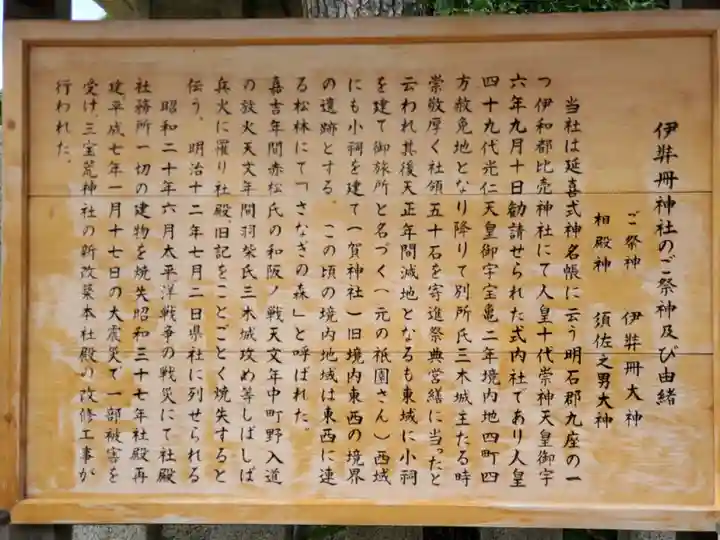 伊弉冊神社のご祭神及び由緒
ご祭神　伊弉冊大神
相殿神　須佐之男大神
当社は延喜式神名帳に云う明石郡九座の一
つ伊和都比売神社にて人皇十代崇神天皇御宇
六年九月十日勧請せられた式内社であり人皇
四十九代光仁天皇御宇宝亀二年境内地四町四
方赦免地となり降りて別所氏三木城主たる時
崇敬厚く社領五十石を寄進祭典営繕に当ったと
云われ其後天正年間減地となるも東域に小祠
を建て御旅所と名づく(元の祇園さん)西域
にも小祠を建て(賀神社)旧境内東西の境界
の遺跡とする。この頃の境内地域は東西に連
る松林にて「さなぎの森」と呼ばれた。
嘉吉年間赤松氏の和阪ノ戦天文年中町野入道
の放火天文年間羽柴氏三木城攻め等しばしば
兵火に罹り社殿、旧記をことごとく焼失すると
伝う。明治十二年七月二日県社に列せられる
昭和二十年六月太平洋戦争の戦災にて社殿
社務所一切の建物を焼失昭和三十七年社殿再
建平成七年一月十七日の大震災で一部被害を
受け、三宝荒神社の新改築本社殿の改修工事が
行われた。